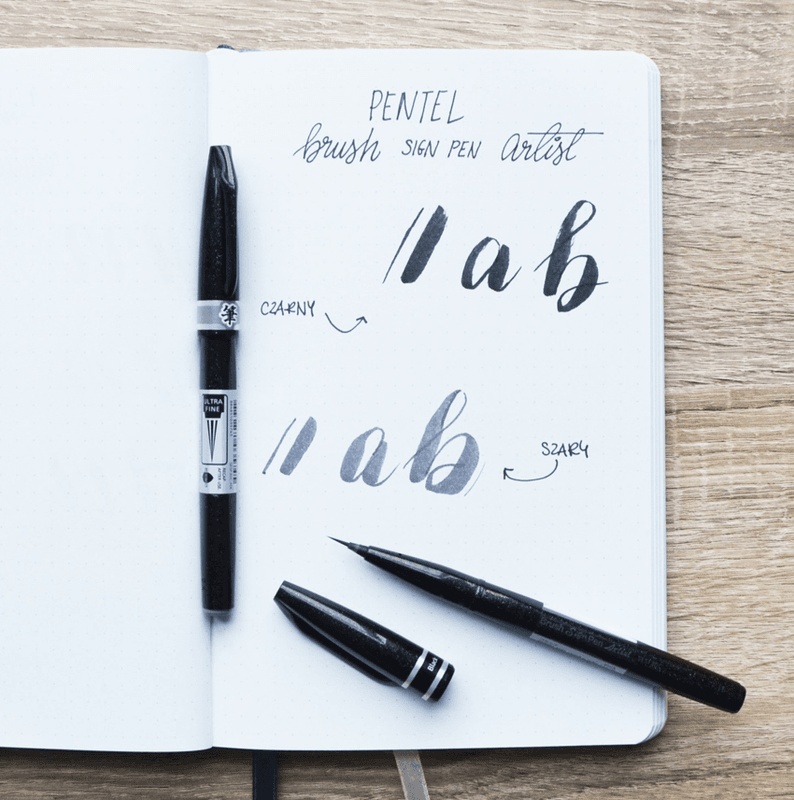 PENTEL
brush SIGN PEN artist
ab
CZARNY
ab
SZARY
筆
ULTRA
FINE